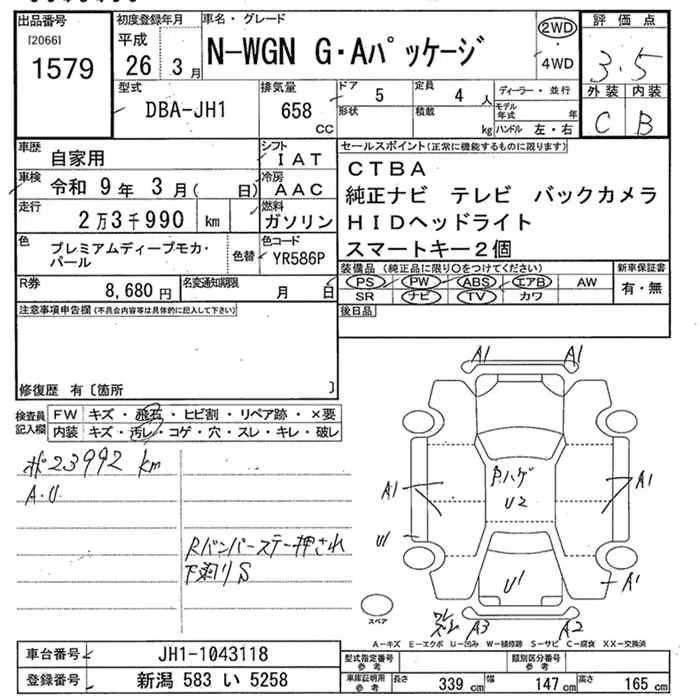 出品番号
[2066]
1579
初度登録年月
平成
26 3月
車名・グレード
N-WGN G・Aパッケージ
2WD
・
4WD
評価点
3.5
外装 内装
C B
型式
DBA-JH1
排気量
658
cc
ドア
5
定員
4 人
形状
積載
kg
ディーラー・並行
モデル年式 年
ハンドル 左・右
車歴
自家用
シフト
IAT
車検
令和 9年 3月( 日)
冷房
AAC
走行
2万3千990 km
燃料
ガソリン
色
プレミアムディープモカ・パール
色替
色コード
YR586P
R券
8,680円
名変通知期限
月 日
セールスポイント(正常に機能するものに限ります)
CTBA
純正ナビ テレビ バックカメラ
HIDヘッドライト
スマートキー2個
装備品 (純正品に限り○をつけてください)
PS PW ABS エアB AW
SR ナビ TV カワ
新車保証書
有・無
後日品
注意事項申告欄(不具合内容等は具体的に記入して下さい)
修復歴 有〔箇所 〕
検査員記入欄
FW キズ・飛石・ヒビ割・リペア跡・×要
内装 キズ・汚レ・コゲ・穴・スレ・キレ・破レ
23992 km
A.U
Rバンパーステー押され
下廻りS
A1 A1
A1
ハゲ
U2
A1
U1
U1
A1
A3 A2
スペア
A-キズ E-エクボ U-凹み W-補修跡 S-サビ C-腐食 XX-交換済
車台番号
JH1-1043118
登録番号
新潟 583 い 5258
型式指定番号
参考
類別区分番号
参考
車庫証明用
参考
長さ 339 cm
幅 147 cm
高さ 165 cm